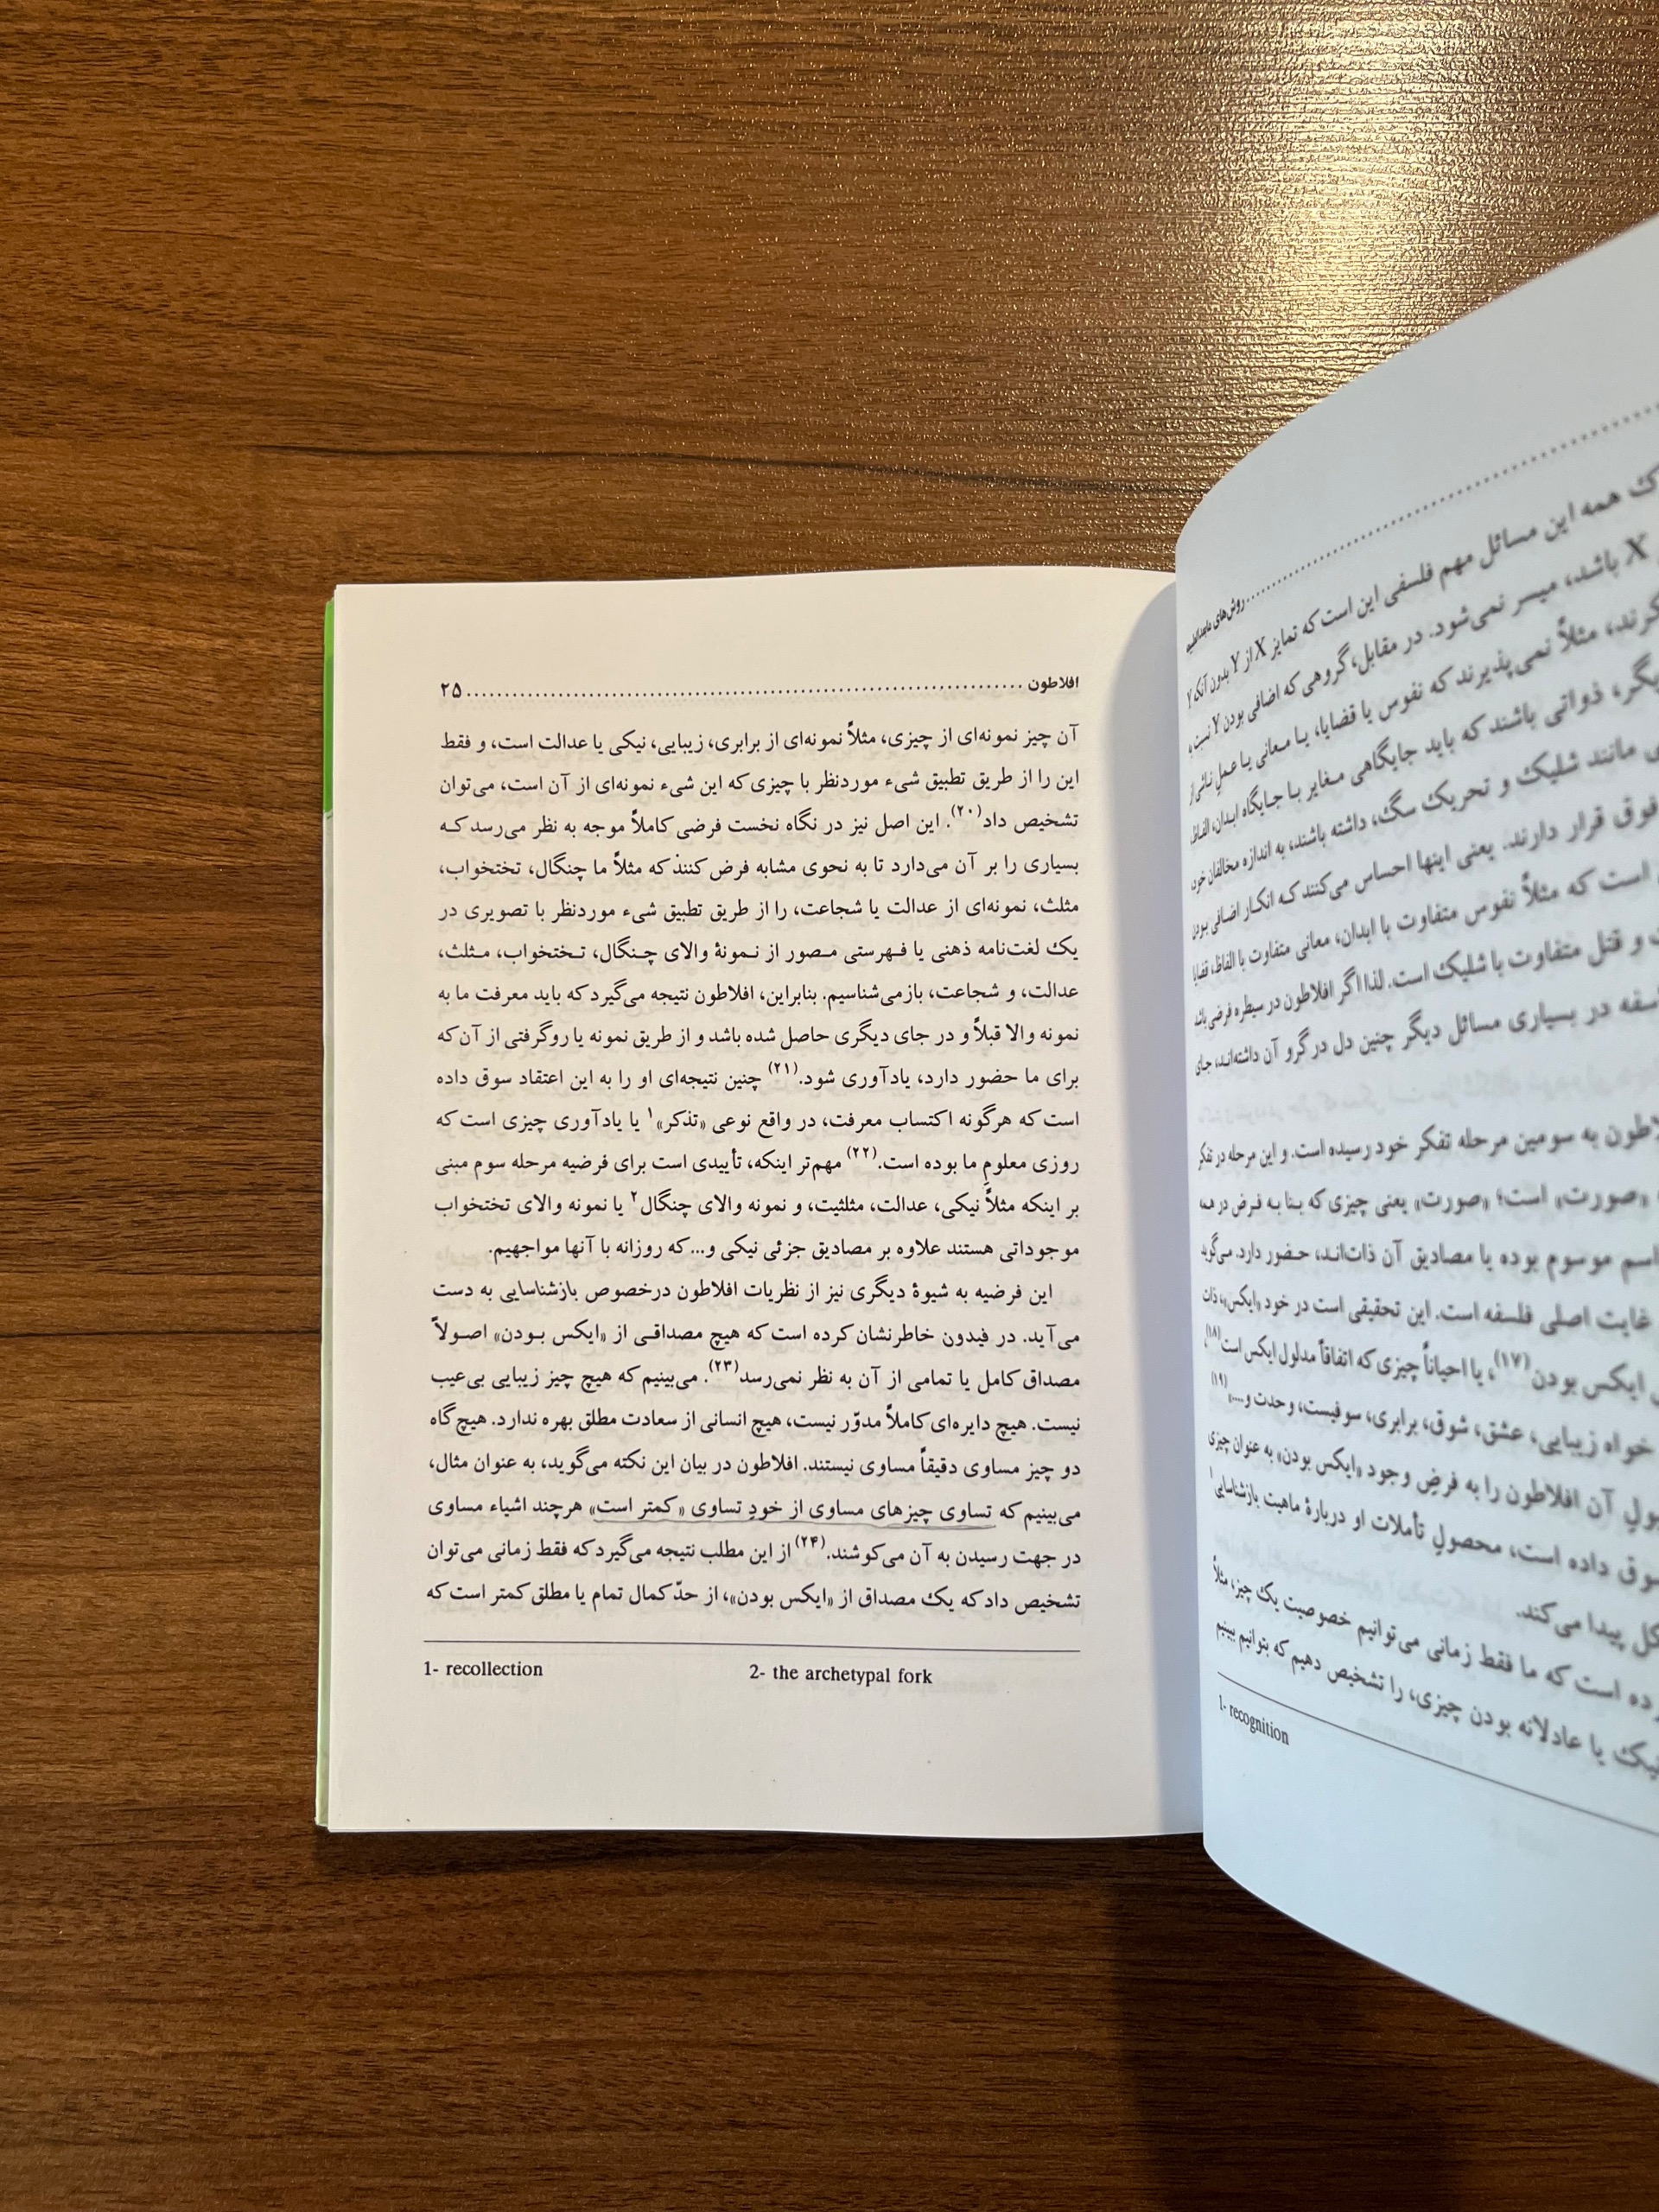 افلاطون ........ ۲۵
آن چیز نمونه‌ای از چیزی، مثلاً نمونه‌ای از برابری، زیبایی، نیکی یا عدالت است، و فقط
این را از طریق تطبیق شیء موردنظر با چیزی که این شیء نمونه‌ای از آن است، می‌توان
تشخیص داد(۲۰). این اصل نیز در نگاه نخست فرضی کاملاً موجه به نظر می‌رسد که
بسیاری را بر آن می‌دارد تا به نحوی مشابه فرض کنند که مثلاً ما چنگال، تختخواب،
مثلث، نمونه‌ای از عدالت یا شجاعت، را از طریق تطبیق شیء موردنظر با تصویری در
یک لغت‌نامه ذهنی یا فهرستی مصور از نمونهٔ والای چنگال، تختخواب، مثلث،
عدالت، و شجاعت، بازمی‌شناسیم. بنابراین، افلاطون نتیجه می‌گیرد که باید معرفت ما به
نمونه والا قبلاً و در جای دیگری حاصل شده باشد و از طریق نمونه یا روگرفتی از آن که
برای ما حضور دارد، یادآوری شود.(۲۱) چنین نتیجه‌ای او را به این اعتقاد سوق داده
است که هرگونه اکتساب معرفت، در واقع نوعی «تذکر»۱ یا یادآوری چیزی است که
روزی معلومِ ما بوده است.(۲۲) مهم‌تر اینکه، تأییدی است برای فرضیه مرحله سوم مبنی
بر اینکه مثلاً نیکی، عدالت، مثلثیت، و نمونه والای چنگال۲ یا نمونه والای تختخواب
موجوداتی هستند علاوه بر مصادیق جزئی نیکی و... که روزانه با آنها مواجهیم.
این فرضیه به شیوهٔ دیگری نیز از نظریات افلاطون درخصوص بازشناسایی به دست
می‌آید. در فیدون خاطرنشان کرده است که هیچ مصداقی از «ایکس بودن» اصولاً
مصداق کامل یا تمامی از آن به نظر نمی‌رسد(۲۳). می‌بینیم که هیچ چیز زیبایی بی‌عیب
نیست. هیچ دایره‌ای کاملاً مدوّر نیست، هیچ انسانی از سعادت مطلق بهره ندارد. هیچ گاه
دو چیز مساوی دقیقاً مساوی نیستند. افلاطون در بیان این نکته می‌گوید، به عنوان مثال،
می‌بینیم که تساوی چیزهای مساوی از خودِ تساوی «کمتر است» هرچند اشیاء مساوی
در جهت رسیدن به آن می‌کوشند.(۲۴) از این مطلب نتیجه می‌گیرد که فقط زمانی می‌توان
تشخیص داد که یک مصداق از «ایکس بودن»، از حدّ کمال تمام یا مطلق کمتر است که
1- recollection 2- the archetypal fork
همه این مسائل مهم فلسفی این است که تمایز X از Y بدون آنکه Y
X باشد، میسر نمی‌شود. در مقابل، گروهی که اضافی بودن Y نسبت
مثلاً نمی‌پذیرند که نفوس یا قضایا، یا معانی یا عمل ناشی از
ذواتی باشند که باید جایگاهی مغایر با جایگاه ابدان، الفاظ
مانند شلیک و تحریک سگ، داشته باشند، به اندازه مخالفان خود
فوق قرار دارند. یعنی اینها احساس می‌کنند که انکار اضافی بودن
است که مثلاً نفوس متفاوت با ابدان، معانی متفاوت با الفاظ، قضایا
و قتل متفاوت با شلیک است. لذا اگر افلاطون در سیطره فرضی باشد
در بسیاری مسائل دیگر چنین دل در گرو آن داشته‌اند، جای
به سومین مرحله تفکر خود رسیده است. و این مرحله در تفکر
«صورت» است؛ «صورت» یعنی چیزی که بنا به فرض در همه
اسم موسوم بوده یا مصادیق آن ذات‌اند، حضور دارد. می‌گوید
غایت اصلی فلسفه است. این تحقیقی است در خود «ایکس»، ذات
ایکس بودن(۱۷)، یا احیاناً چیزی که اتفاقاً مدلول ایکس است(۱۸)،
خواه زیبایی، عشق، شوق، برابری، سوفیست، وحدت و...(۱۹)
آن افلاطون را به فرضِ وجود «ایکس بودن» به عنوان چیزی
داده است، محصولِ تأملات او دربارهٔ ماهیت بازشناسایی۱
پیدا می‌کند.
است که ما فقط زمانی می‌توانیم خصوصیت یک چیز، مثلاً
یا عادلانه بودن چیزی، را تشخیص دهیم که بتوانیم ببینیم
1- recognition